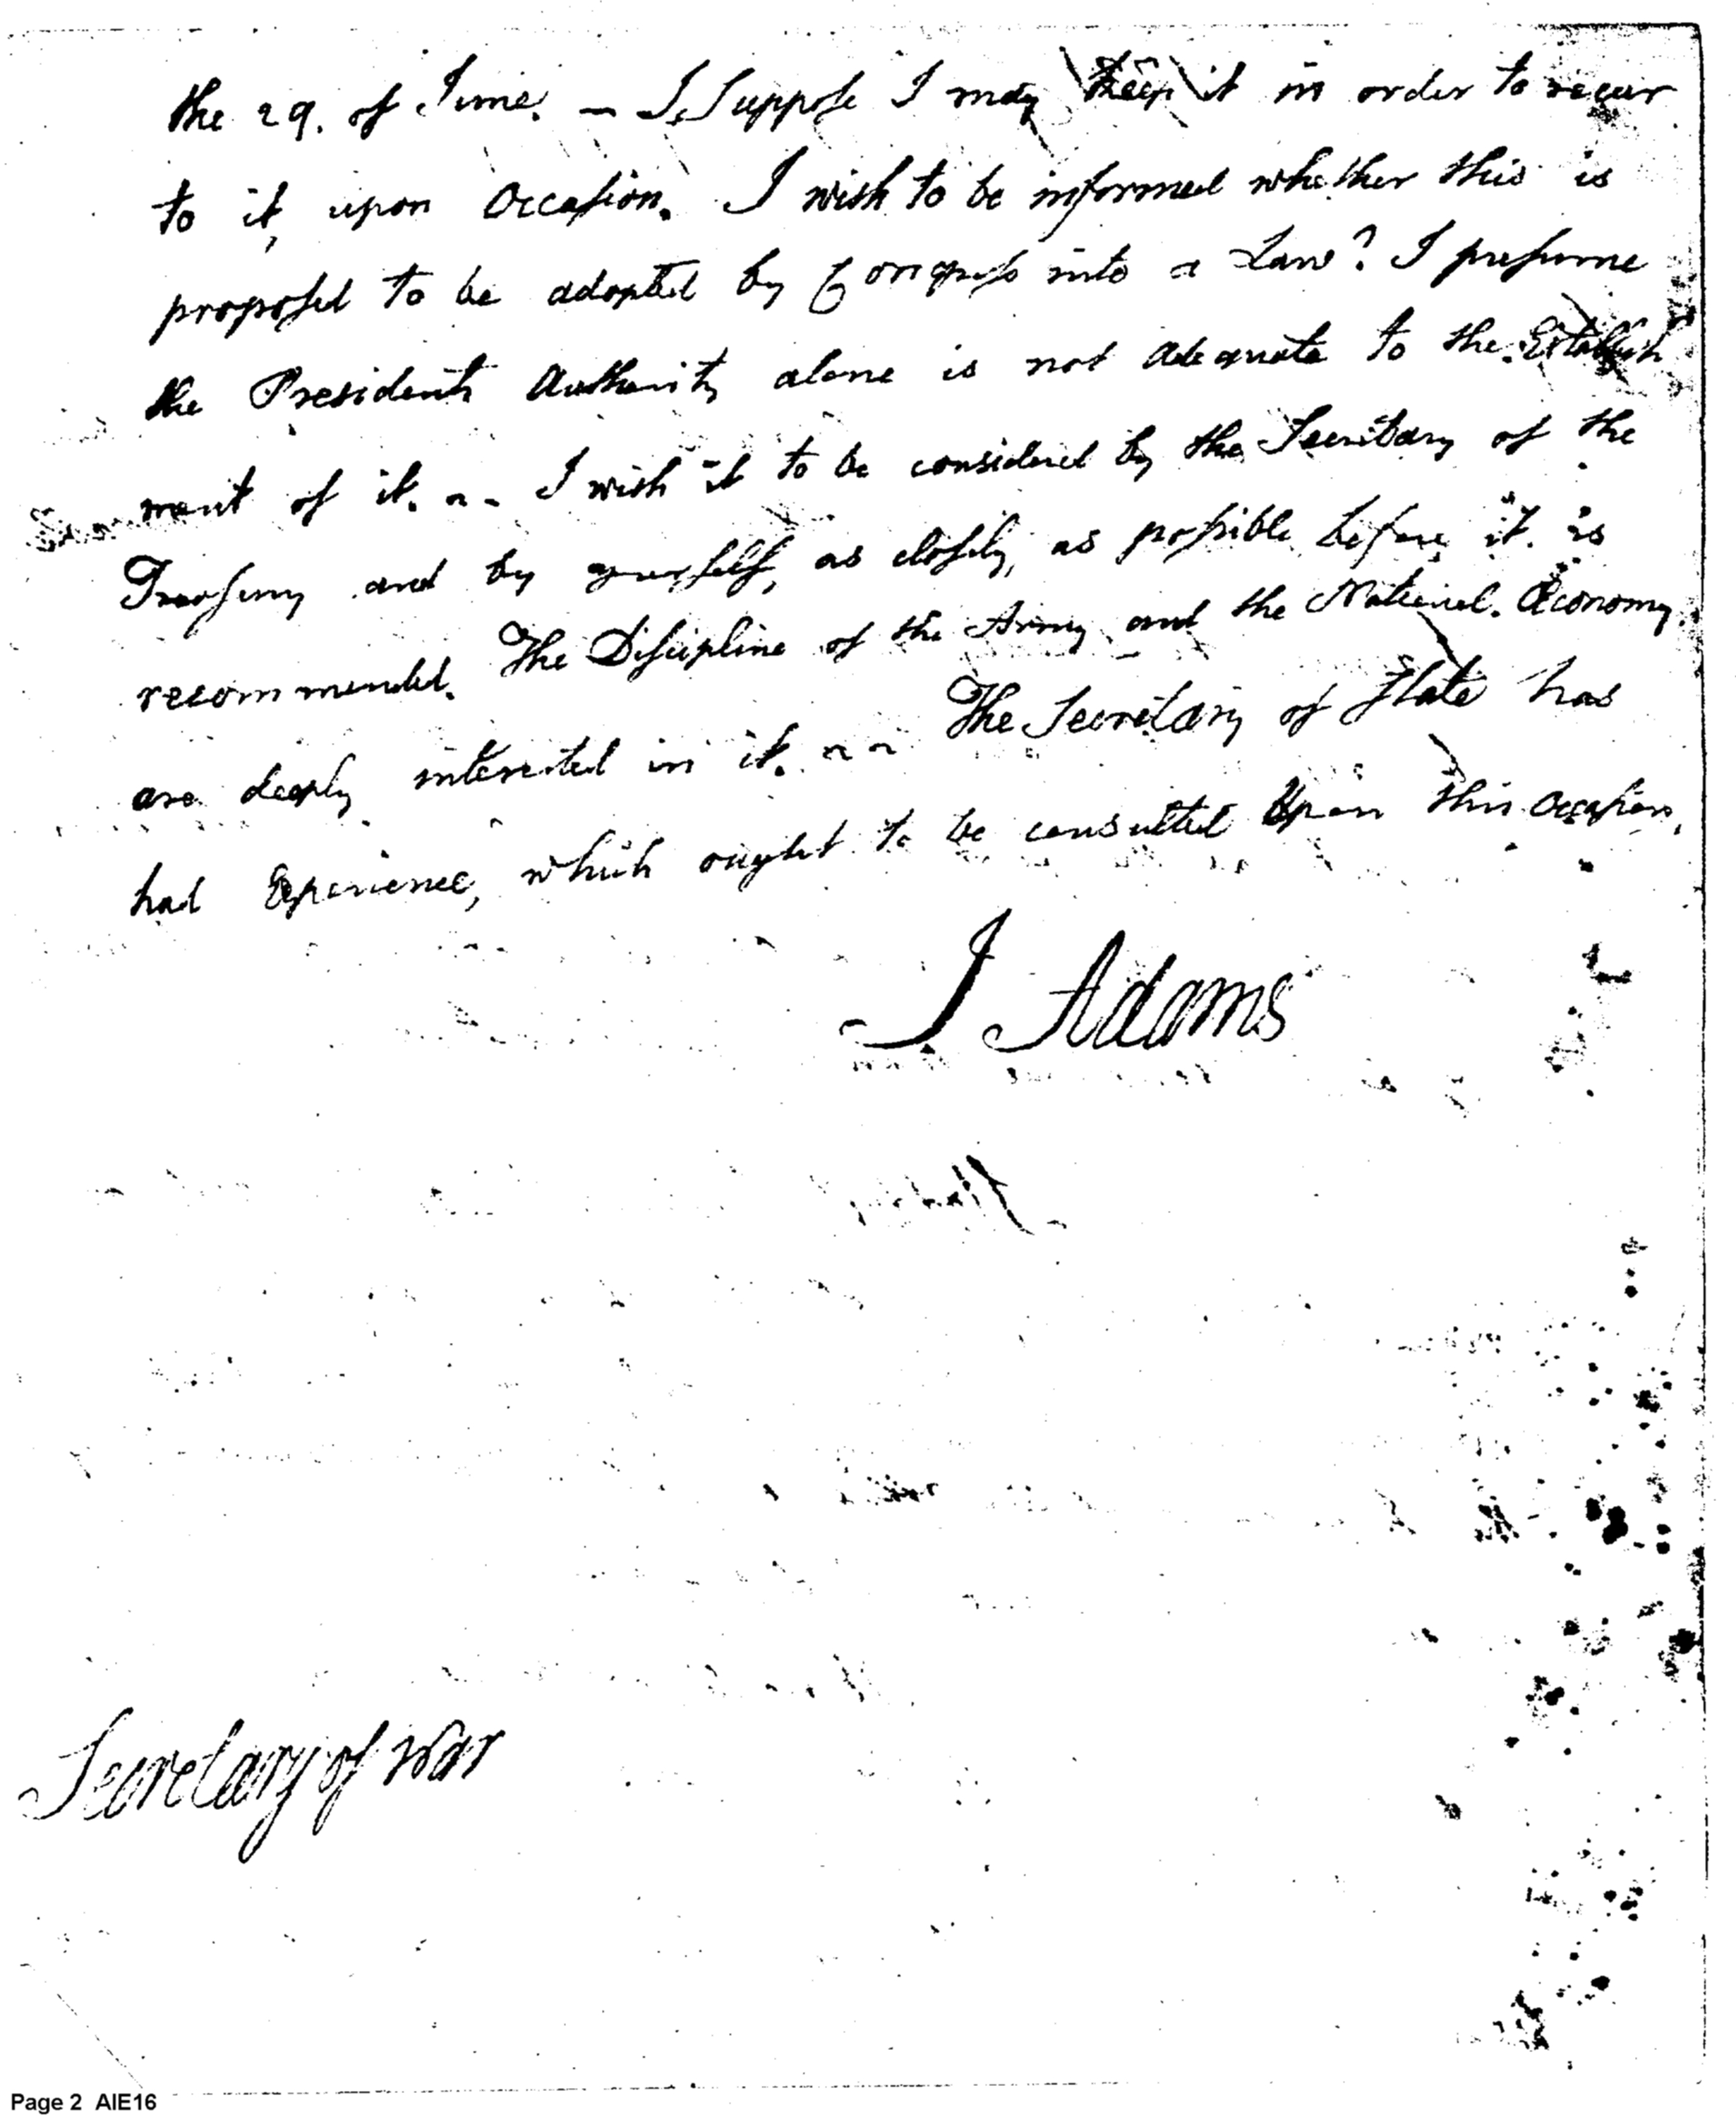 the 29. of June. — I Suppose I may keep it in order to recur
to it, upon Occasion. I wish to be informed whether this is
proposed to be adopted by Congress into a Law? I presume
the Presidents Authority alone is not adequate to the Establish
ment of it. — I wish it to be considered by the Secretary of the
Treasury and by yourself, as closely, as possible before it is
recommended. The Discipline of the Army and the National Œconomy
are deeply interested in it. — The Secretary of State has
had Experience, which ought to be consulted Upon this occasion.
J Adams
Secretary of War
Page 2 AIE16